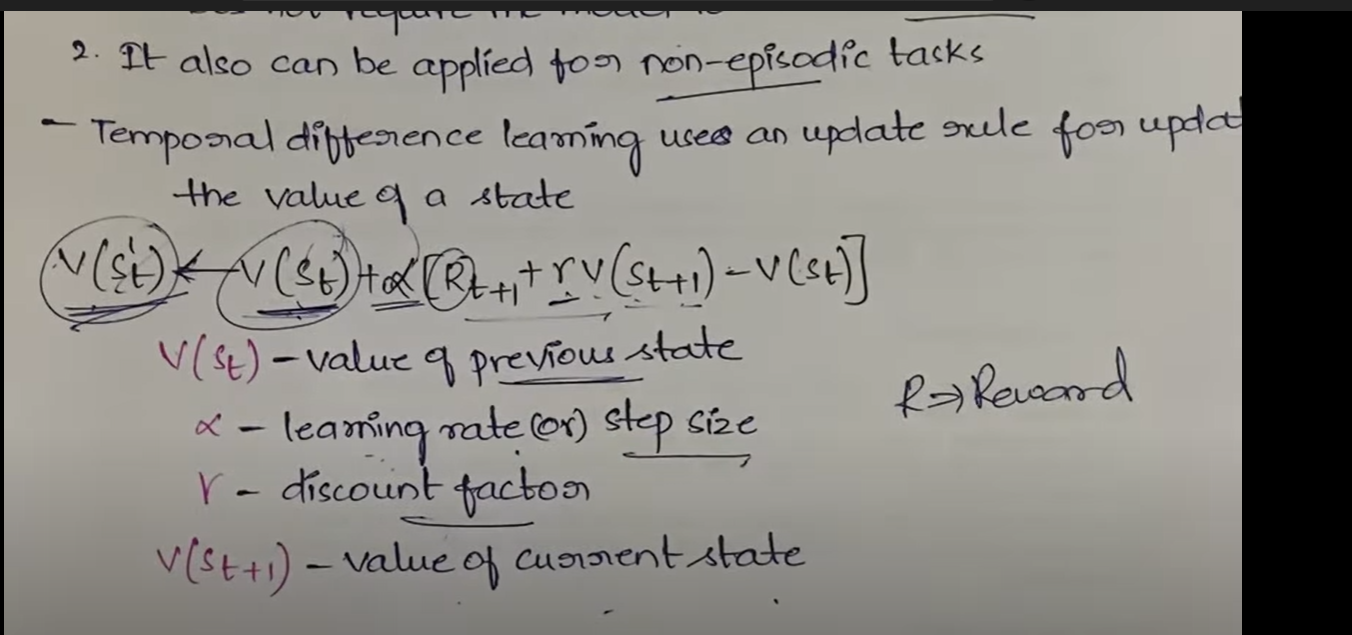 does not require the model is
2. It also can be applied for non-episodic tasks
- Temporal difference learning uses an update rule for updat
the value of a state
V(St) ← V(St) + α [Rt+1 + γV(St+1) - V(St)]
V(St) - value of previous state
α - learning rate (or) step size
R => Reward
γ - discount factor
V(St+1) - value of current state